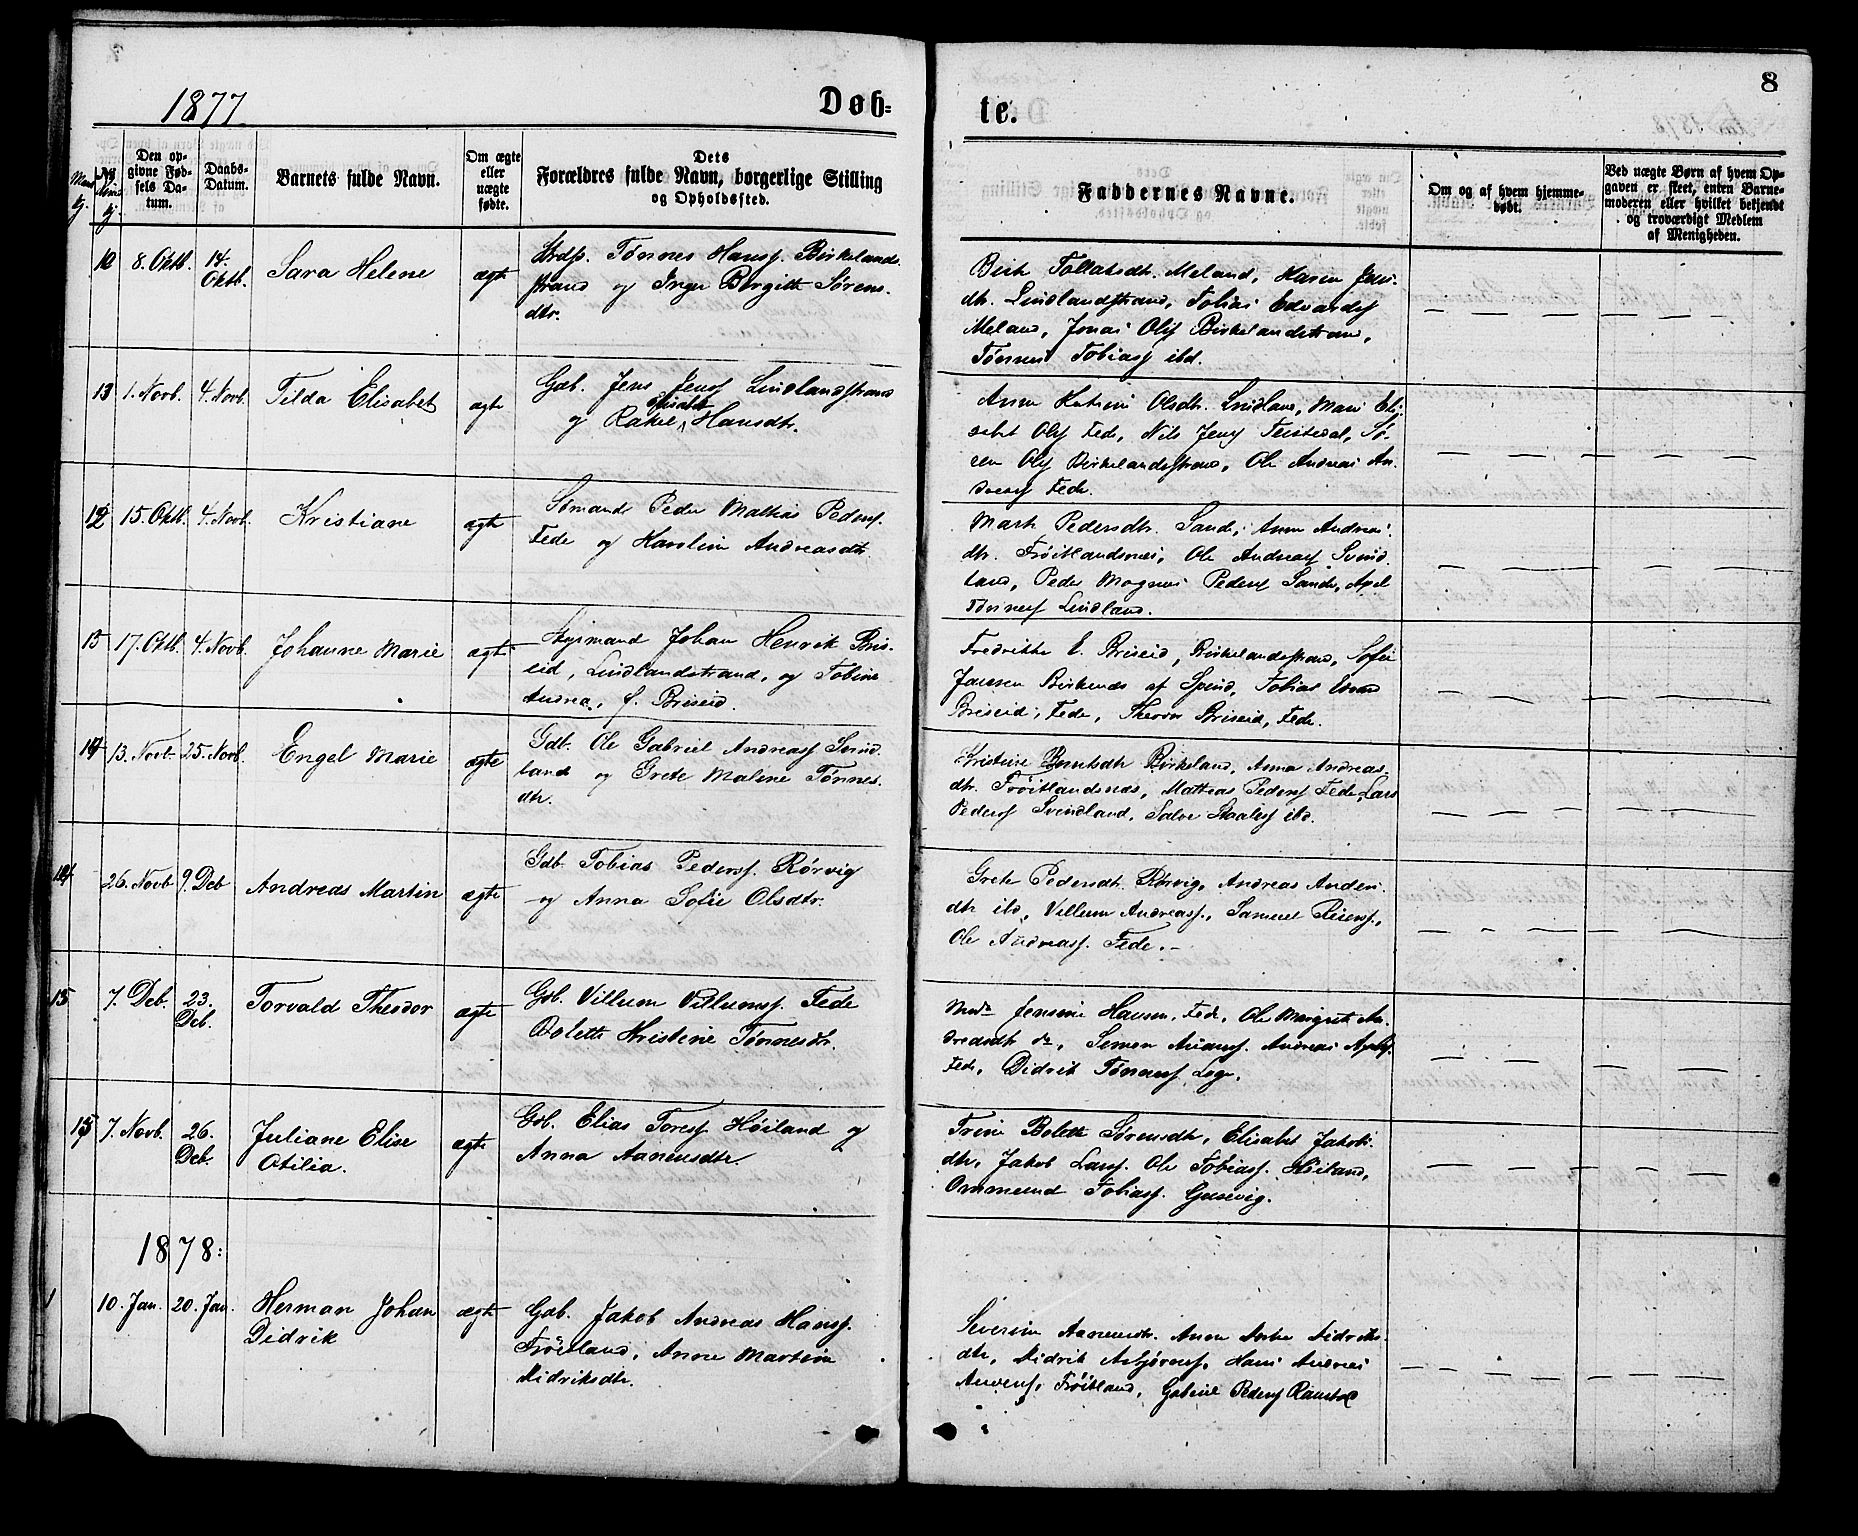 8
1877
Døb-
te.
Den op-
givne Fød-
sels Da-
tum.
Daabs-
Datum.
Barnets fulde Navn.
Om ægte
eller
uægte
fødte.
Dets
Forældres fulde Navn, borgerlige Stilling
og Opholdssted.
Faddernes Navne.
Om og af hvem hjemme-
døbt.
Ved uægte Børn af hvem Op-
gaven er skeet, enten Barne-
moderen eller hvilket bekjendt
og troværdigt Medlem
af Menigheden.
8. Oktb. 14. Oktb. Sara Helene ægte
Strdp. Tønnes Hanss. Birkelands-
strand og Inger Birgitte Sørens-
dtr.
Berte Tollaksdtr. Meland, Karen Jens-
dtr. Lindlandsstrand, Tobias Edvards.
Meland, Jonas Ols. Birkelandstrand,
Tønnes Tobiass. ibd.
13 1. Novb. 4. Novb. Tilda Elisabet ægte
Gdb. Jens Jenss. Lindlandsstrand
og Rakel Elisabet Hansdtr.
Anne Katrine Olsdtr. Lindland, Mari Eli-
sabet Ols. Fede, Nils Jens. Feistedal, Sø-
ren Ols. Birkelandsstrand, Ole Andreas An-
dreass. Fede.
12 15. Oktb. 4. Novb. Kristiane ægte
Sømand Peder Mathias Peders.
Fede og Karoline Andreasdtr.
Marte Pedersdtr. Sande, Anne Andreas-
dtr. Frøitlandsnes, Ole Andreass. Svind-
land, Peder Magnus Peders. Sande, Axel
Tønness. Lindland.
13 17. Oktb. 4. Novb. Johanne Marie ægte
Styrmand Johan Henrik Bris-
eid, Lindlandstrand, og Tobine
Andrea, f. Briseid.
Fredrikke E. Briseid, Birkelandsstrand, Sofie
Jansen Birkenes af Spind, Tobias
Briseid, Fede, Briseid, Fede.
14 13. Novb. 25. Novb. Engel Marie ægte
Gdb. Ole Gabriel Andreass. Svind-
land og Grete Malene Tønnes-
dtr.
Kristine Berntsdtr. Birkeland, Anna Andreas-
dtr. Frøitlandsnes, Mathias Peders. Fede, Lars
Peders. Svindland, Salve Staales. ibd.
14 26. Novb. 9. Deb. Andreas Martin ægte
Gdb. Tobias Pederss. Rørvig
og Anna Sofie Olsdtr.
Grete Pedersdtr. Rørvig, Andreas Anders-
dtr. ibd, Villum Andreass., Samuel Reiers.,
Ole Andreass. Fede.
15 7. Deb. 23. Deb. Torvald Theodor ægte
Gdb. Villum Villumss. Fede
Bolette Kristine Tønnesdtr.
Mad. Jensine Hansen, Fede, Ole Margrete An-
dreasdtr. do, Simon Andreas
Fede, Didrik Tønness. Loge.
15 7. Novb. 26. Deb. Juliane Elise
Otilia. ægte
Gdb. Elias Toress. Høiland og
Anna Aanensdtr.
Trine Bolette Sørensdtr, Elisabet Jakobs-
dtr, Jakob Larss. Ole Tobiass. Høiland,
Ommund Tobiass. Gusevig.
1878:
1 10. Jan. 20. Jan. Herman Johan
Didrik ægte
Gdb. Jakob Andreas Hanss.
Frøitland, Anne Martine
Didriksdtr.
Severine Aanensdtr. Anne Didriks-
dtr, Didrik Asbjørns. Hans Andreas
Frøitland, Gabriel Peders. Ramsdal